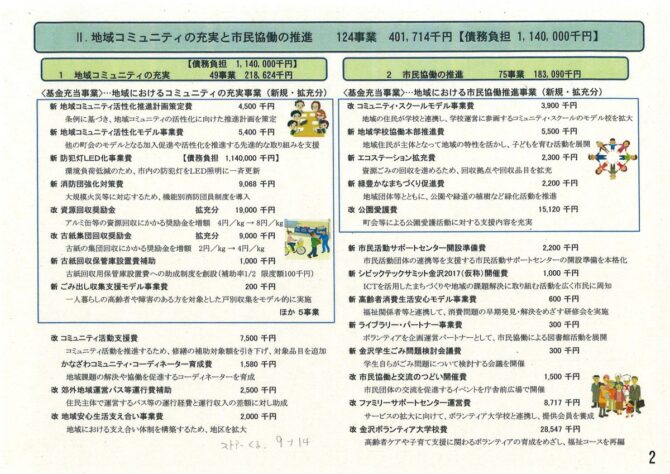 Ⅱ.地域コミュニティの充実と市民協働の推進　124事業　401,714千円【債務負担 1,140,000千円】
【債務負担 1,140,000千円】
1　地域コミュニティの充実　49事業　218,624千円
<基金充当事業>…地域におけるコミュニティの充実事業（新規・拡充分）
新 地域コミュニティ活性化推進計画策定費　4,500 千円
条例に基づき、地域コミュニティの活性化に向けた推進計画を策定
新 地域コミュニティ活性化モデル事業費　5,400 千円
他の町会のモデルとなる加入促進や活性化を推進する先進的な取り組みを支援
新 防犯灯LED化事業費　【債務負担 1,140,000 千円】
環境負荷低減のため、市内の防犯灯をLED照明に一斉更新
新 消防団強化対策費　9,068 千円
大規模火災等に対応するため、機能別消防団員制度を導入
改 資源回収奨励金　拡充分　19,000 千円
アルミ缶等の資源回収にかかる奨励金を増額　4円／kg → 8円／kg
改 古紙集団回収奨励金　拡充分　9,000 千円
古紙の集団回収にかかる奨励金を増額　2円／kg → 4円／kg
新 古紙回収保管庫設置費補助　1,000 千円
古紙回収用保管庫設置費への助成制度を創設（補助率1/2 限度額100千円）
新 ごみ出し収集支援モデル事業費　200 千円
一人暮らしの高齢者や障害のある方を対象とした戸別収集をモデル的に実施
ほか 5事業
改 コミュニティ活動支援費　7,500 千円
コミュニティ活動を推進するため、修繕の補助対象額を引き下げ、対象品目を追加
かなざわコミュニティ・コーディネーター育成費　1,580 千円
地域課題の解決や協働を促進するコーディネーターを育成
改 郊外地域運営バス等運行費補助　2,500 千円
住民主体で運営するバス等の運行経費と運行収入の差額に対し助成
改 地域安心生活支え合い事業費　2,000 千円
地域における支え合い体制を構築するため、地区を拡大
2　市民協働の推進　75事業　183,090千円
<基金充当事業>…地域における市民協働推進事業（新規・拡充分）
改 コミュニティ・スクールモデル事業費　3,900 千円
地域の住民が学校と連携し、学校運営に参画するコミュニティ・スクールのモデル校を拡大
新 地域学校協働本部推進費　5,500 千円
地域住民が主体となって地域の特性を活かし、子どもを育む活動を展開
新 エコステーション拡充費　2,300 千円
資源ごみの回収を進めるため、回収拠点や回収品目を拡充
新 緑豊かなまちづくり促進費　2,200 千円
地域団体等とともに、公園や緑道の植樹など緑化活動を推進
改 公園愛護費　15,120 千円
町会等による公園愛護活動に対する支援内容を充実
新 市民活動サポートセンター開設準備費　2,200 千円
市民活動団体の連携等を支援する市民活動サポートセンターの開設準備を本格化
新 シビックテックサミット金沢2017(仮称)開催費　1,000 千円
ICTを活用したまちづくりや地域の課題解決に取り組む活動を広く市民に周知
新 高齢者消費生活安心モデル事業費　600 千円
福祉関係者等と連携して、消費問題の早期発見・解決をめざす研修会を実施
新 ライブラリー・パートナー事業費　300 千円
ボランティアを企画運営パートナーとして、市民協働による図書館活動を展開
新 金沢学生ごみ問題検討会議費　300 千円
学生自らがごみ問題について検討する会議を開催
改 市民協働と交流のつどい開催費　1,500 千円
市民団体の交流を促進するイベントを庁舎前広場で開催
改 ファミリーサポートセンター運営費　8,717 千円
サービスの拡大に向けて、ボランティア大学校と連携し、提供会員を養成
改 金沢ボランティア大学校費　28,547 千円
高齢者ケアや子育て支援に関わるボランティアの育成をめざし、福祉コースを再編
2